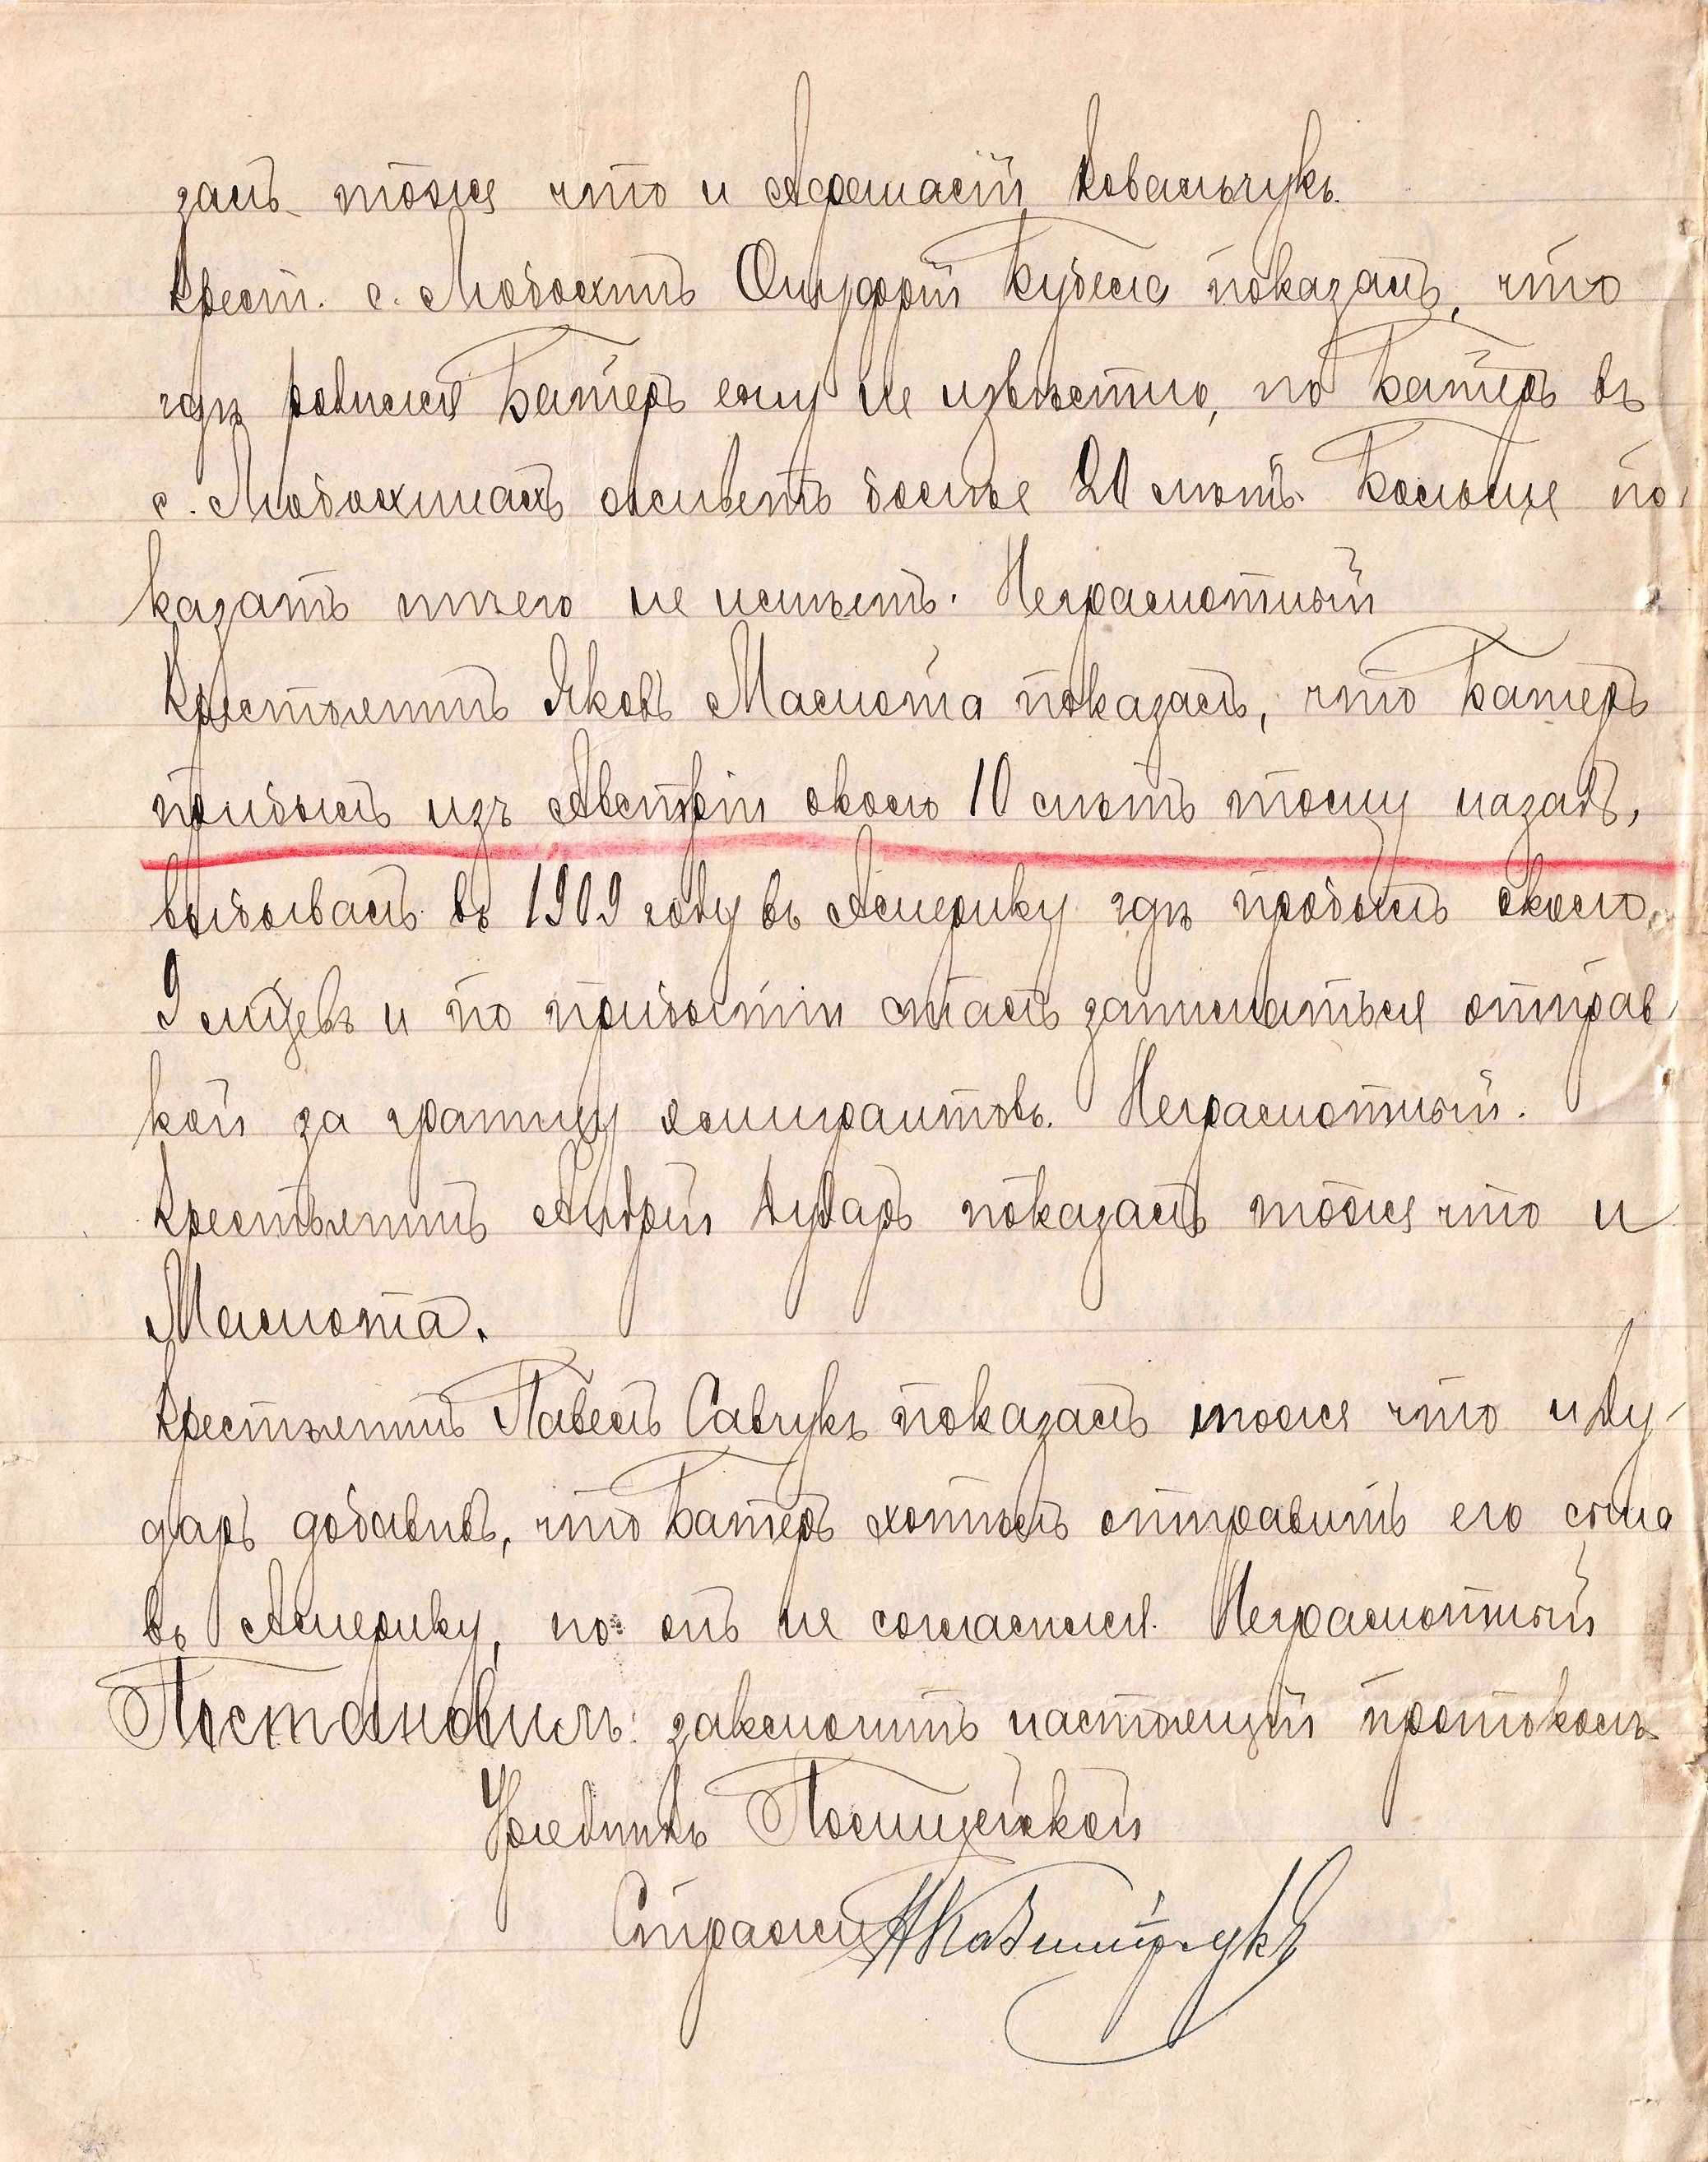 залъ тоже что и Афанасій Ковальчукъ.
Крест. с. Любохинъ Онуфрій Кубела показалъ, что
гдѣ родился Батеръ ему не извѣстно, но Батеръ въ
с. Любохинахъ живетъ болѣе 20 лѣтъ. Больше по-
казать ничего не имѣетъ. Неграмотный
Крестьянинъ Яковъ Мамота показалъ, что Батеръ
прибылъ изъ Австріи около 10 лѣтъ тому назадъ,
выбывалъ въ 1909 году въ Америку гдѣ пробылъ около
9 мѣ-цевъ и по прибытіи сталъ заниматься отправ
кой за границу эмигрантовъ. Неграмотный.
Крестьянинъ Андрей Дударъ показалъ тоже что и
Мамота.
Крестьянинъ Павелъ Савчукъ показалъ тоже что и Ду-
даръ добавивъ, что Батеръ хотѣлъ отправить его сына
въ Америку, но онъ не согласился. Неграмотный
Постановилъ: заключить настоящій протоколъ
Урядникъ Полицейской
Стражи